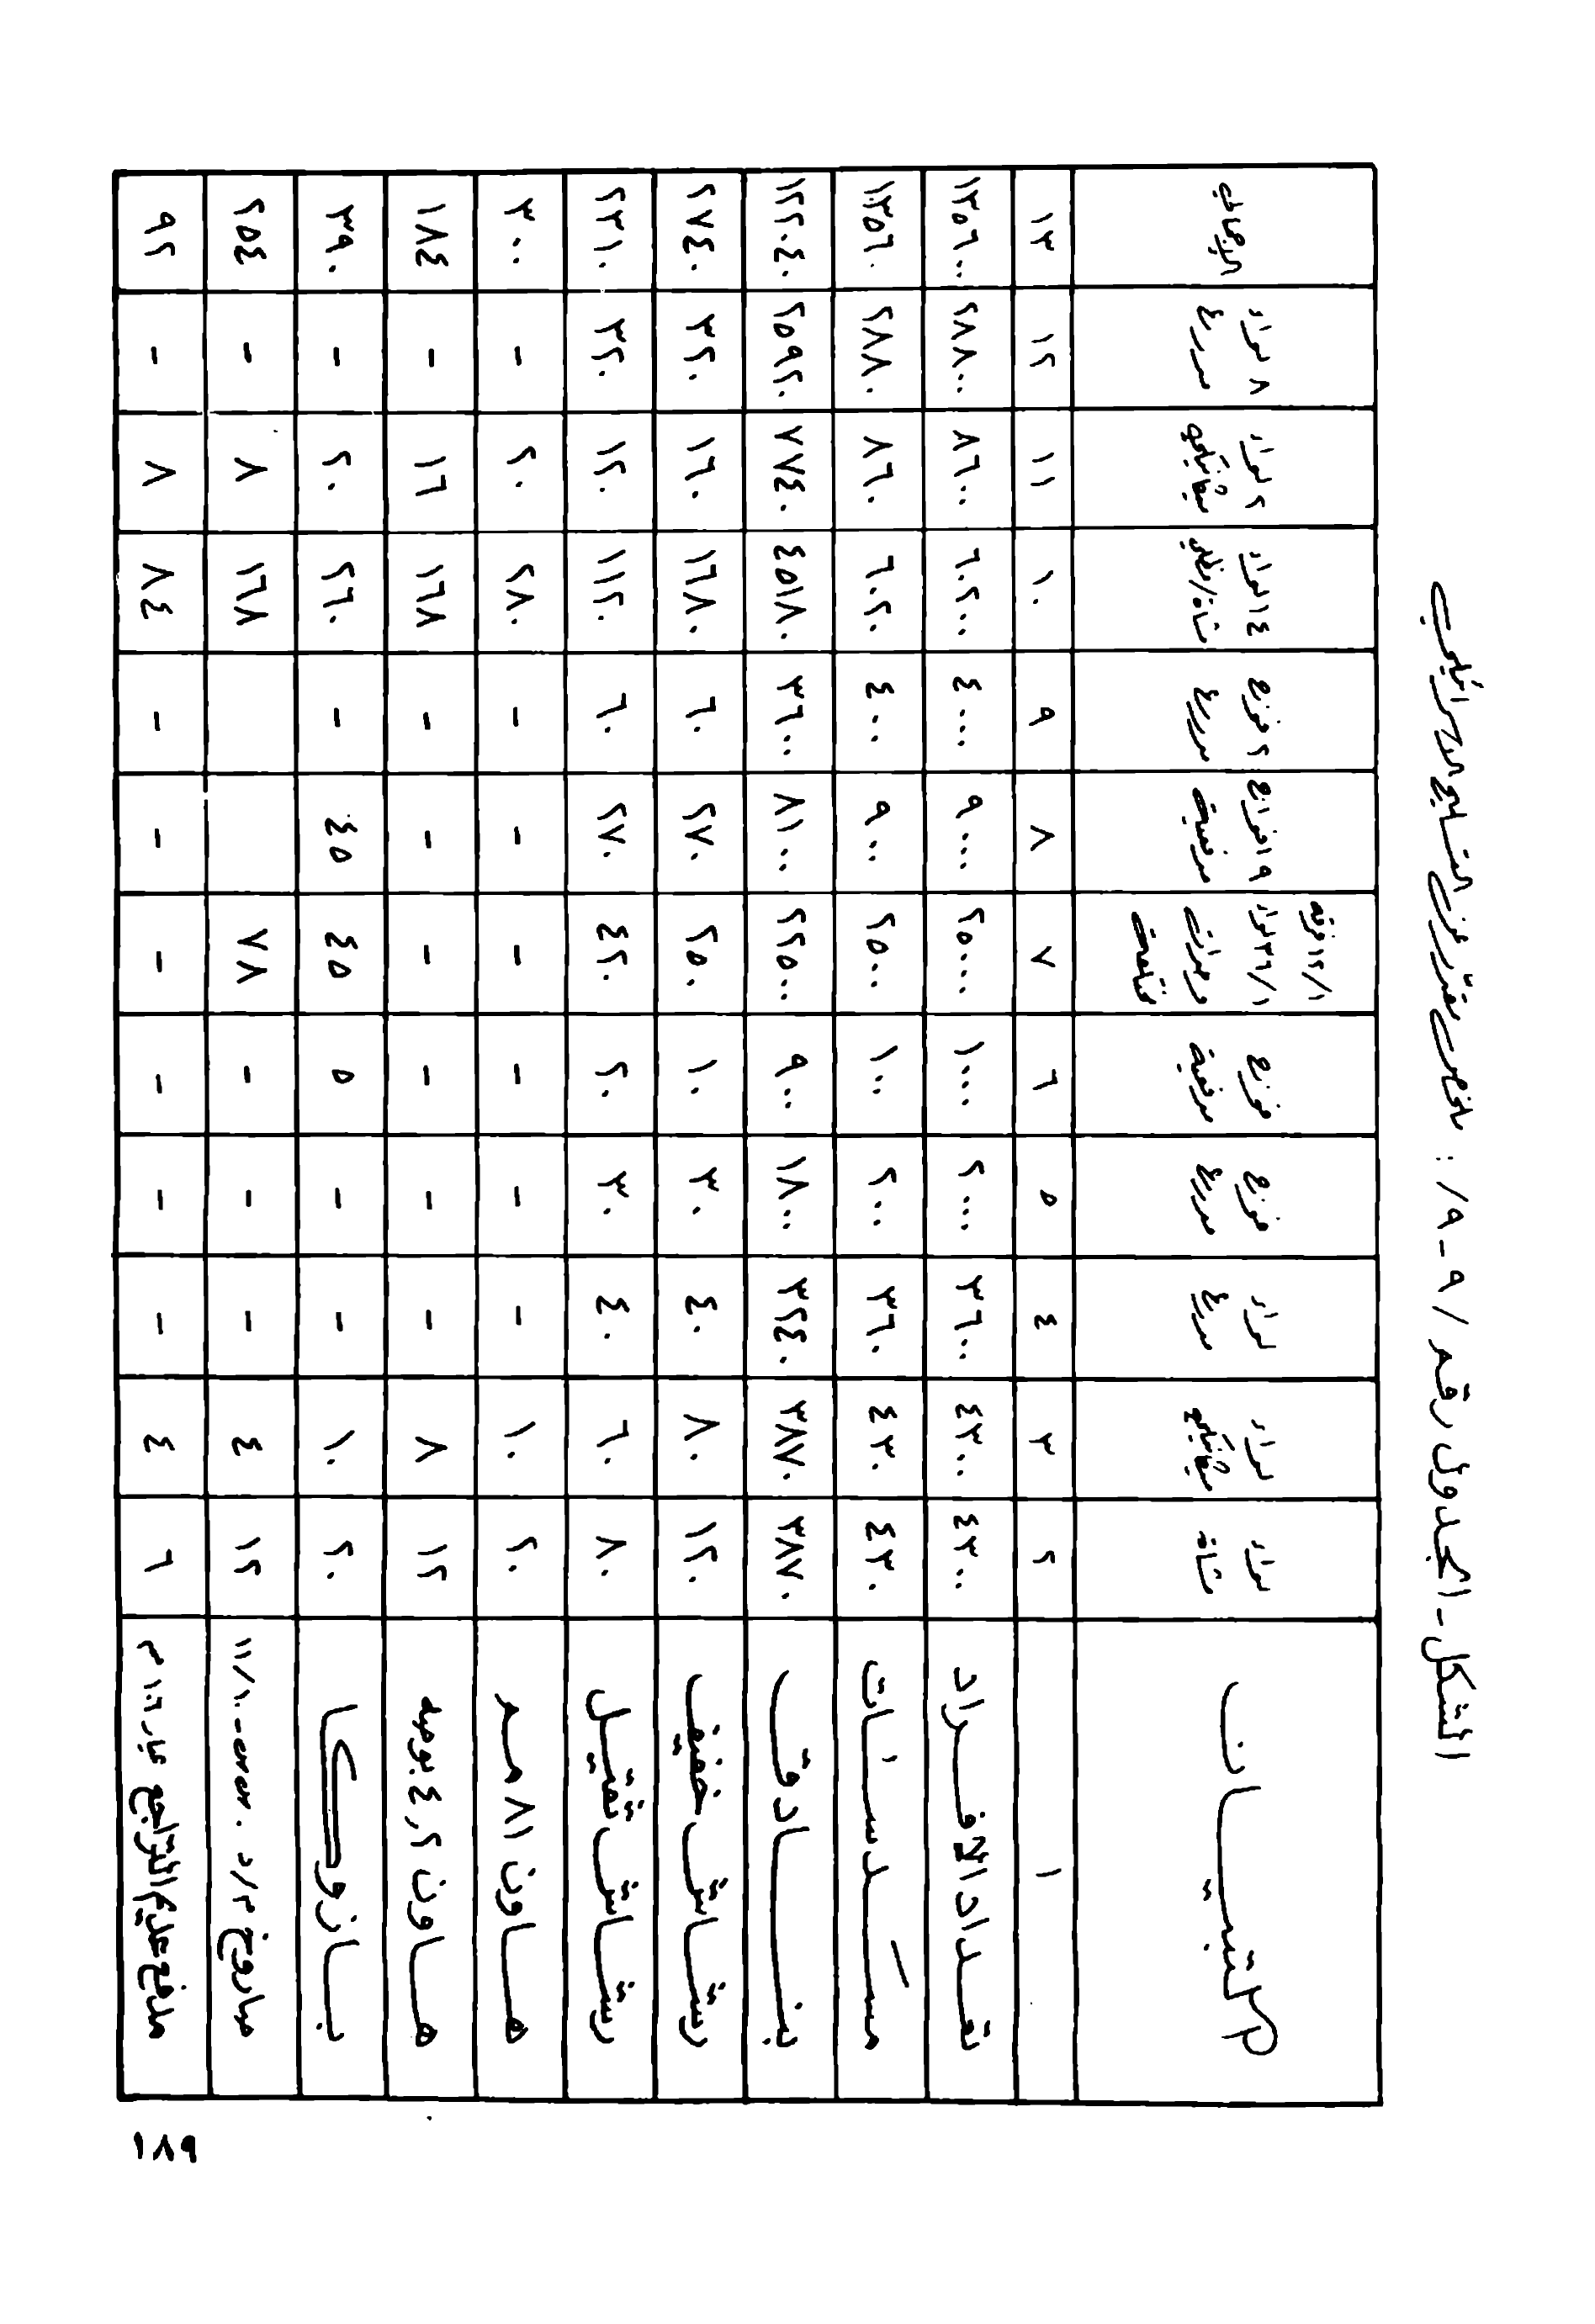 الشكل - الجدول رقم / ٩ - ٩ / : ملخص يقدر عن التسليح الاسرائيلي
التبيــان لواء مشاة لواء ميكانيكي لواء مدرع فوج مدرع فوج مدفعية ١/١٢ فرقة ١/٣٦ لواء وحدات مختلفة ٩ افواج مدفعية ٢ فوج مدرع ١٤ لواء مشاة/مظلي ٢ لواء ميكانيكي ٨ لواء مدرع الاجمالي
١ ٢ ٣ ٤ ٥ ٦ ٧ ٨ ٩ ١٠ ١١ ١٢ ١٣
تعداد الافراد ٤٣٠٠ ٤٣٠٠ ٣٦٠٠ ٢٠٠٠ ١٠٠٠ ٢٥٠٠٠ ٩٠٠٠ ٤٠٠٠ ٦٠٢٠٠ ٨٦٠٠ ٢٨٨٠٠ ١٣٥٦٠٠
مسدسات ٤٣٠ ٤٣٠ ٣٦٠ ٢٠٠ ١٠٠ ٢٥٠٠ ٩٠٠ ٤٠٠ ٦٠٢٠ ٨٦٠ ٢٨٨٠ ١٣٥٦٠
بنادق ٣٨٧٠ ٣٨٧٠ ٣٢٤٠ ١٨٠٠ ٩٠٠ ٢٢٥٠٠ ٨١٠٠ ٣٦٠٠ ٤٥١٨٠ ٧٧٤٠ ٢٥٩٢٠ ١٢٢٠٤٠
رشاش خفيف ١٢٠ ٨٠ ٤٠ ٣٠ ١٠ ٢٥٠ ٢٧٠ ٦٠ ١٦٨٠ ١٦٠ ٣٢٠ ٢٧٤٠
رشاش ثقيل ٨٠ ٦٠ ٤٠ ٣٠ ٢٠ ٤٢٠ ٢٧٠ ٦٠ ١١٢٠ ١٢٠ ٣٢٠ ٢٣١٠
هاون ٨١ مم ٢٠ ١٠ - - - - - - ٢٨٠ ٢٠ - ٣٠٠
هاون ٤,٢ بوصه ١٢ ٨ - - - - - - ١٦٨ ١٦ - ١٨٤
بازوكا ٢٠ ١٠ - - ٥ ٤٥ ٤٥ - ٢٦٠ ٢٠ - ٣٩٠
صاروخ م/د ١١/١٠ ١٢ ٤ - - - ٧٨ ١٦٨ ٨ - ٢٥٤
مدفع عديم التراجع عيار ١٠٦ مم ٦ ٤ - - - - - - ٨٤ ٨ - ٩٢
١٨٩